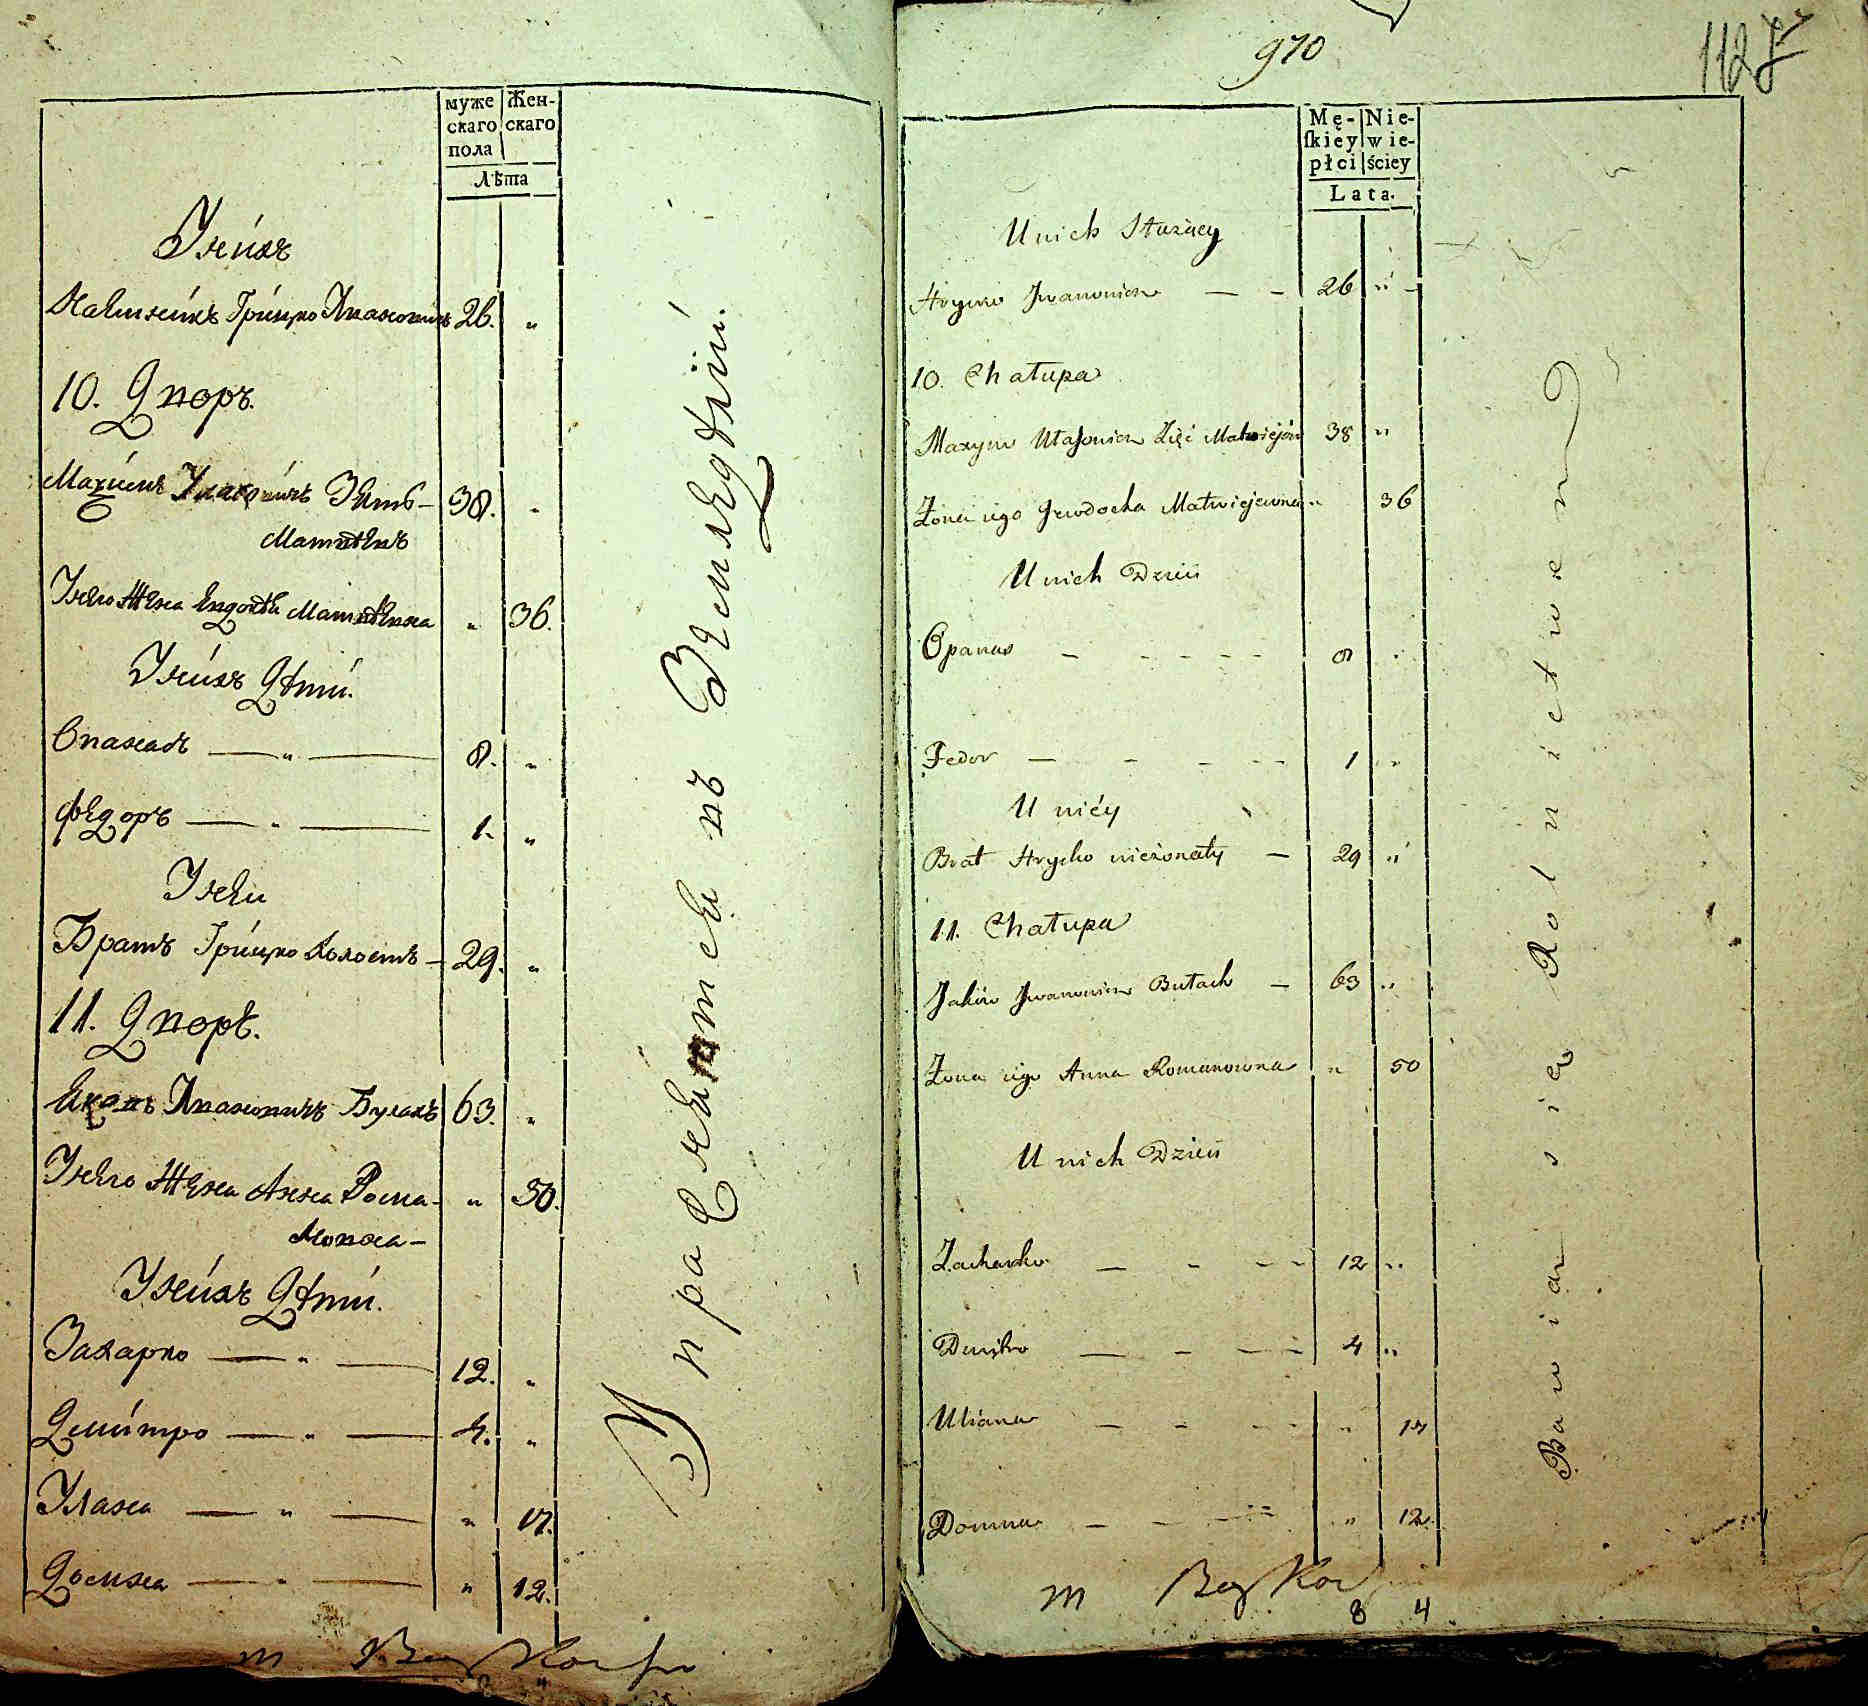 муже скаго пола
Жен- скаго
лѣта
Унихъ
Наемникъ Грицко Ивановичъ 26. „
10. Дворъ.
Максимъ Улас Зять- 38. „
Матвѣевъ
Унего Жена Евдокѣя Матвѣевна „ 36.
Унихъ Дѣти.
Опанасъ — „ — 8. „
Федоръ — „ — 1. „
Унеи
Братъ Грицко Холостъ — 29. „
11. Дворъ.
Яковъ Ивановичъ Булахъ 63. „
Унего Жена Анна Рома- „ 50.
новна —
Унихъ Дѣти.
Захарко — „ — 12. „
Дмитро — „ — 4. „
Уляна — „ — „ 17.
Домна — „ — „ 12.
Упражняются въ Земледѣлии.
m
970
112
Mę- skiey płci
Nie- wie- ściey
Lata.
U nich Służący
Hrycko Jwanowicz — - 26 „ -
10. Chałupa
Maxym Zięć Matwiejów 38 „
Żona iego Jewdocha Matwiejewna „ 36
U nich Dzieci
Opanas — - - - - - 8 „
Fedor — - - - - 1 „
U niéy
Brat Hrycko nieżonaty — 29 „
11. Chałupa
Jaków Jwanowicz Bułach — 63 „
Żona iego Anna Romanowna „ 50
U nich Dzieci
Zacharko — - - - 12 „
Dmitro — - - - 4 „
Uliana — - - - „ 17
Domna — - - - „ 12.
Bawią się Rolnictwem
m
8 4